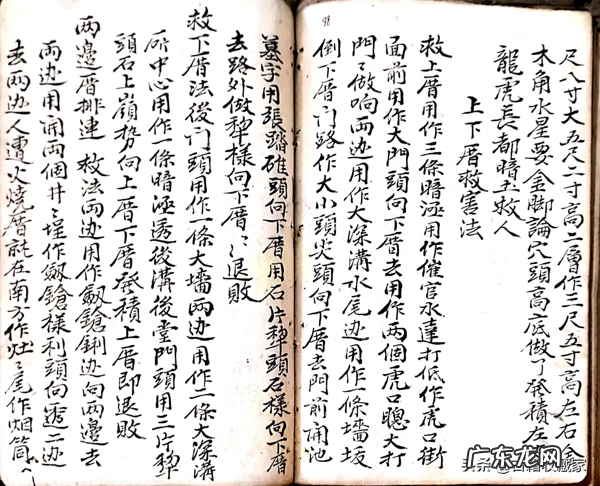 尺八寸大五尺二寸高二層作三尺五寸高左右合
木角水星要金脚論穴頭高底做了發積左
龍虎長都暗 救人
上下厝救害法
救上厝用作三條暗 用作催官水達打低作虎口街
面前用作大門頭向下厝去用作兩個虎口 大打
門々做响兩边用作大深溝水尾边用作一條墻坂
倒下厝门路作大小頭尖頭向下厝去門前開池
墓字用張 碓頭向下厝用石片犂頭石樣向下厝
去路外做犂樣向下厝々退敗
救下厝法後门頭用作一條大墻兩边用作二條大深溝
所中心用作一條暗 透後溝後堂門頭用三片犂
頭石上嶺势向上厝下厝發積上厝即退敗
兩邊厝排連 救法兩边用作劔鎗 边向兩邊去
兩边用開兩個井々埕作劔鎗樣利頭向透二边
去兩边人遭火燒厝就在南方作灶々尾作烟筒
98
头条@古籍收藏家
广东龙网